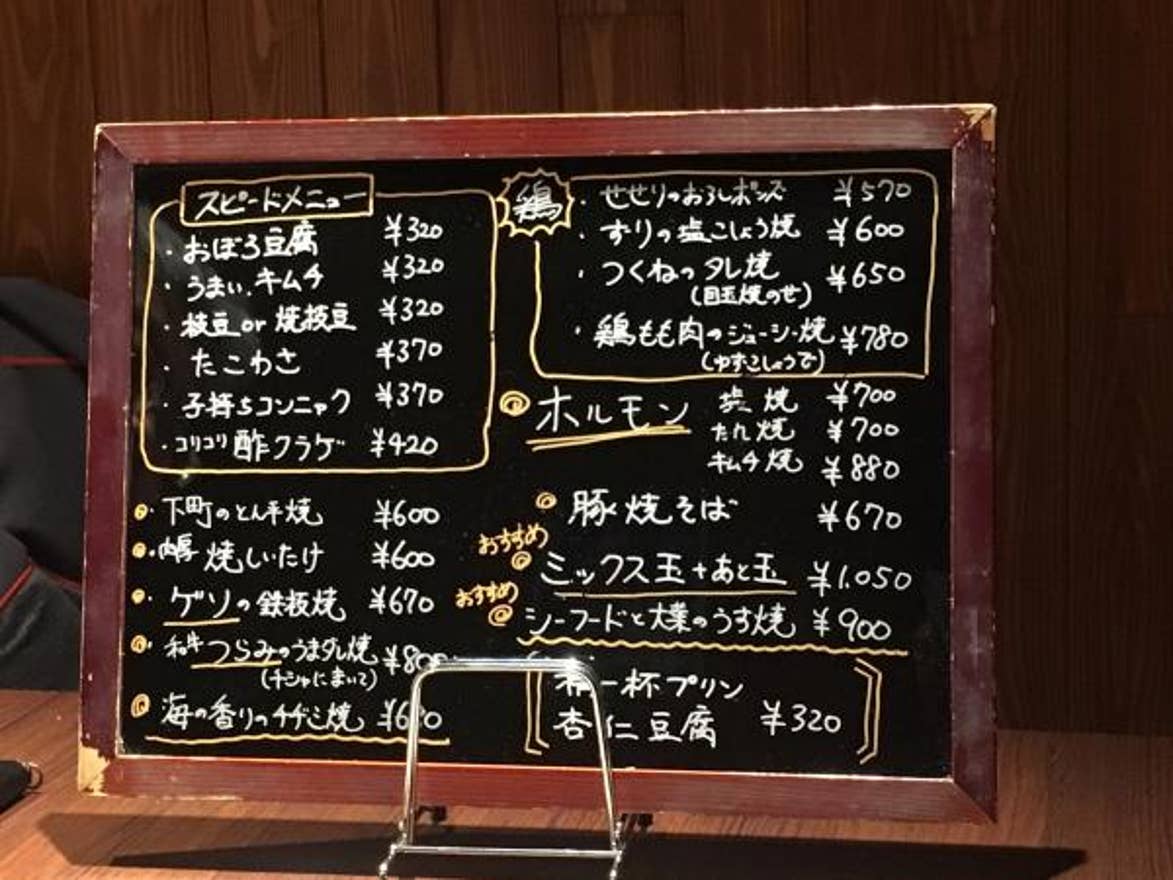 スピードメニュー
・おぼろ豆腐 ¥320
・うまい.キムチ ¥320
・枝豆or焼枝豆 ¥320
・たこわさ ¥370
・子持ちコンニャク ¥370
・コリコリ酢クラゲ ¥420
・下町のとん平焼 ¥600
・肉厚焼しいたけ ¥600
・ゲソの鉄板焼 ¥670
・和牛つらみのうまダレ焼 ¥800
(チシャにまいて)
海の香りのチヂミ焼
鶏
・せせりのおろしポンズ ¥570
・ずりの塩こしょう焼 ¥600
・つくねのタレ焼 ¥650
(目玉焼のせ)
・鶏もも肉のジューシー焼 ¥780
(ゆずこしょうで)
ホルモン 塩焼 ¥700
たれ焼 ¥700
キムチ焼 ¥880
豚焼そば ¥670
おすすめ
ミックス玉+あと玉 ¥1.050
おすすめ
シーフードと大葉のうす焼 ¥900
一杯プリン
杏仁豆腐 ¥320